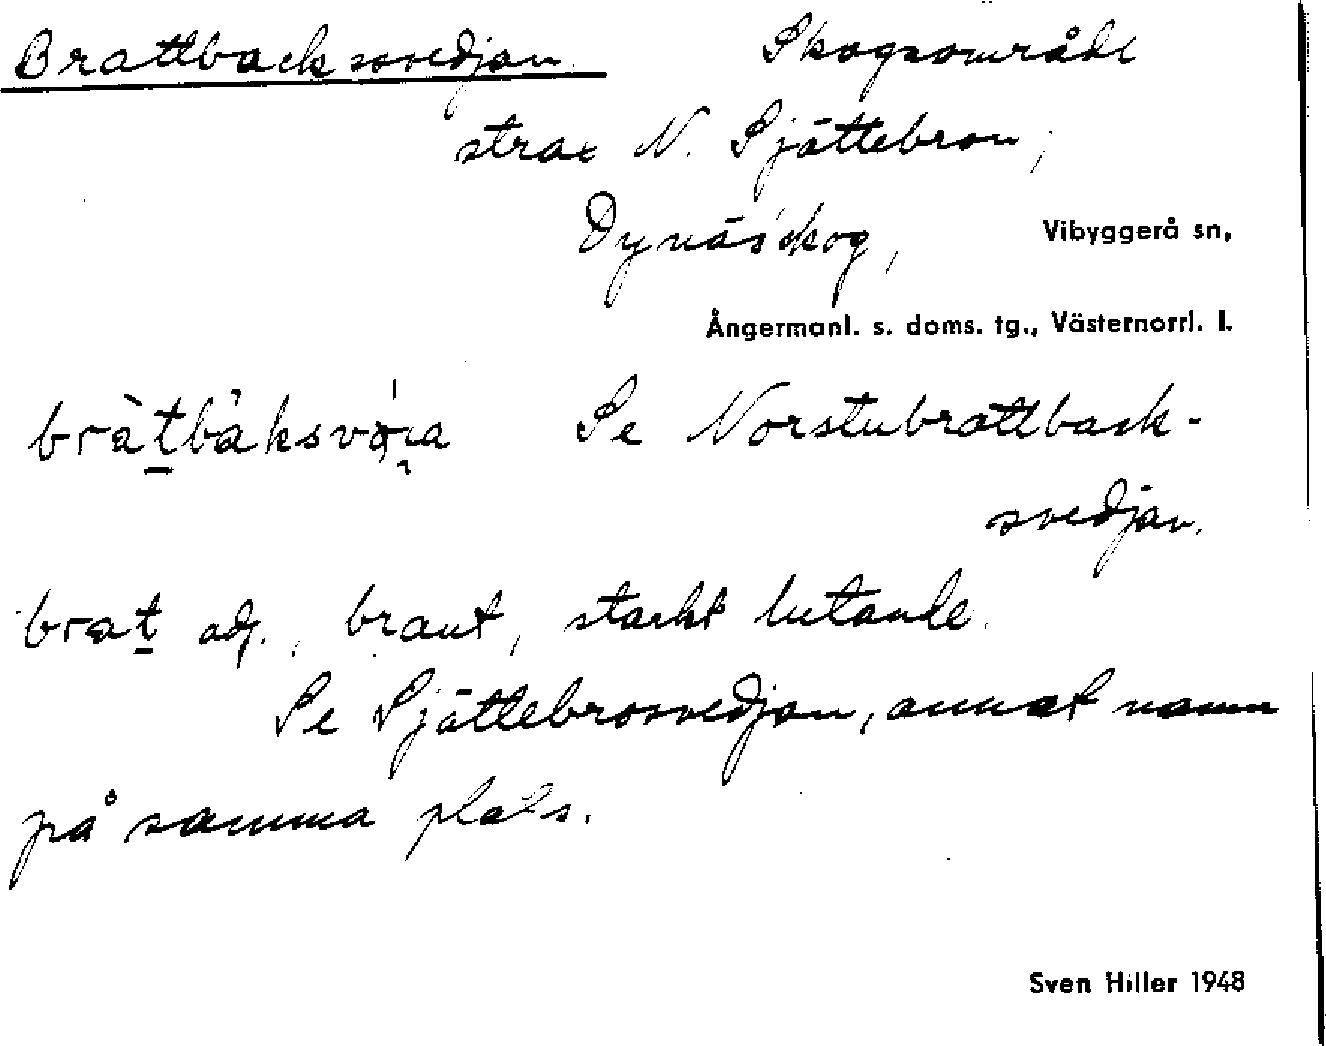 Brattbackssvedjan. Skogsområde
strax N. Sjättebron,
Dynäs skog, Vibyggerå sn,
Ångermanl. s. doms. tg., Västernorrl. l.
Se Norstubrattback-
svedjan.
brat adj., brant, starkt lutande.
Se Sjättebrosvedjan, annat namn
på samma plats.
Sven Hiller 1948